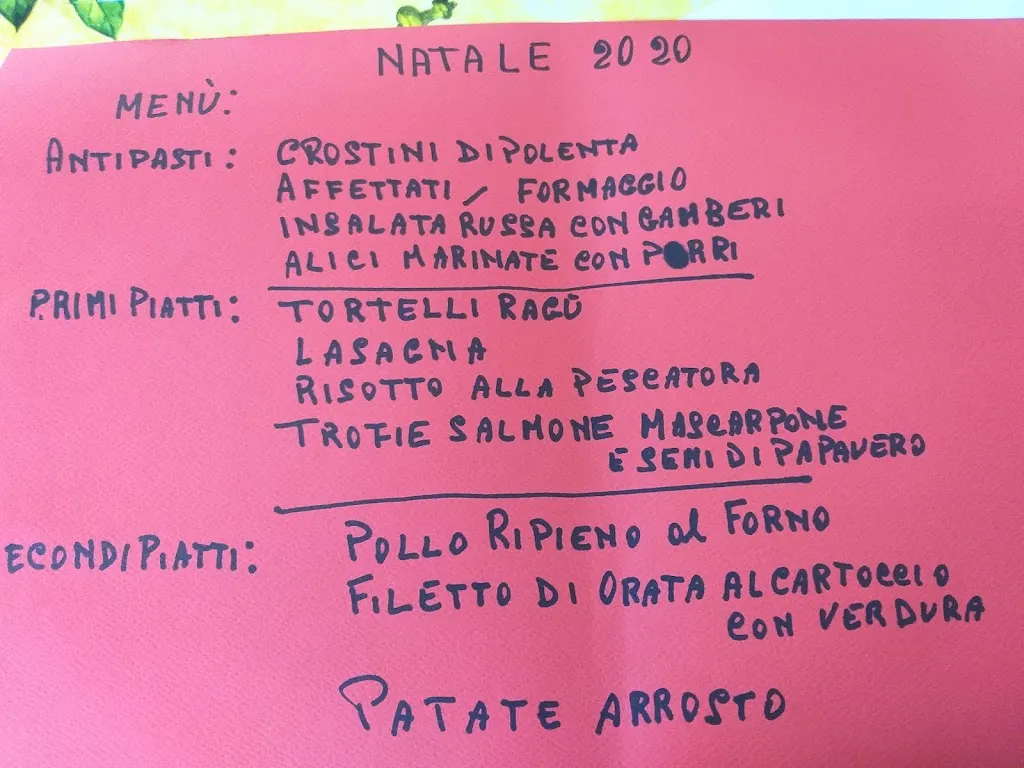 NATALE 2020
MENÙ:
ANTIPASTI: CROSTINI DI POLENTA
AFFETTATI / FORMAGGIO
INSALATA RUSSA CON GAMBERI
ALICI MARINATE CON PORRI
PRIMI PIATTI: TORTELLI RAGÙ
LASAGNA
RISOTTO ALLA PESCATORA
TROFIE SALMONE MASCARPONE
E SEMI DI PAPAVERO
ECONDI PIATTI: POLLO RIPIENO al FORNO
FILETTO DI ORATA AL CARTOCCIO
CON VERDURA
PATATE ARROSTO